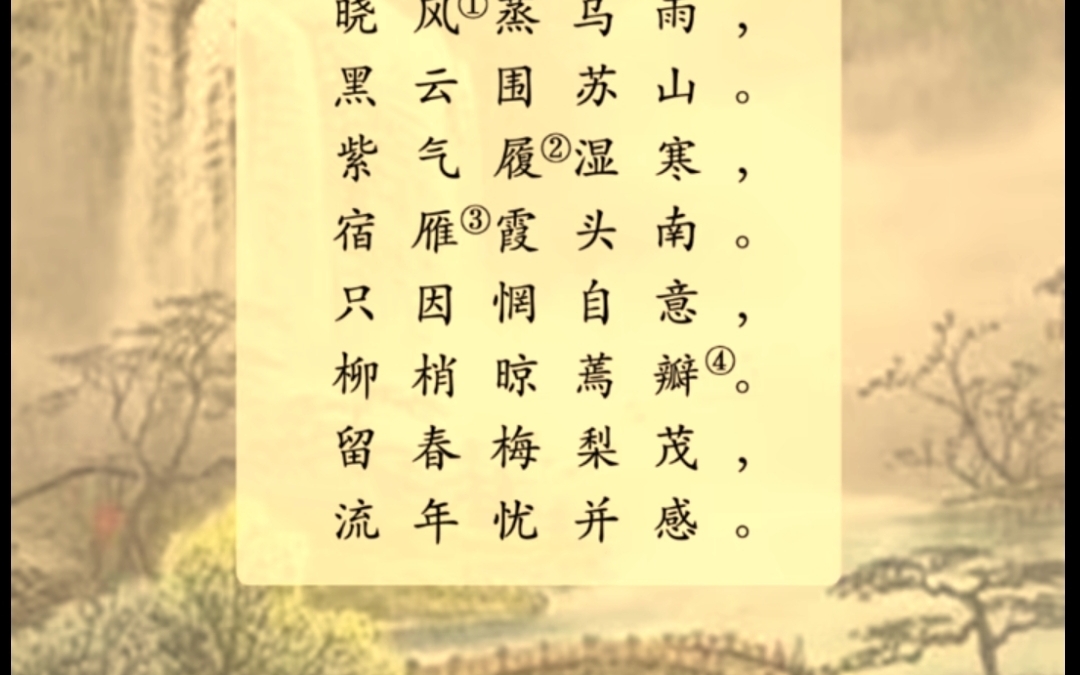 晓风①蒸乌雨，
黑云围苏山。
紫气履②湿寒，
宿雁③霞头南。
只因惘自意，
柳梢晾蔫瓣④。
留春梅梨茂，
流年忧并感。